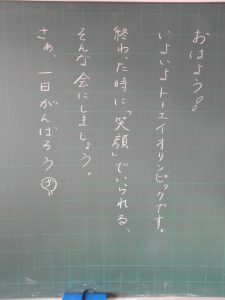 おはよう。
いよいよトーエイオリンピックです。
終わった時に「笑顔」でいられる、
そんな会にしましょう。
さぁ、一日がんばろう